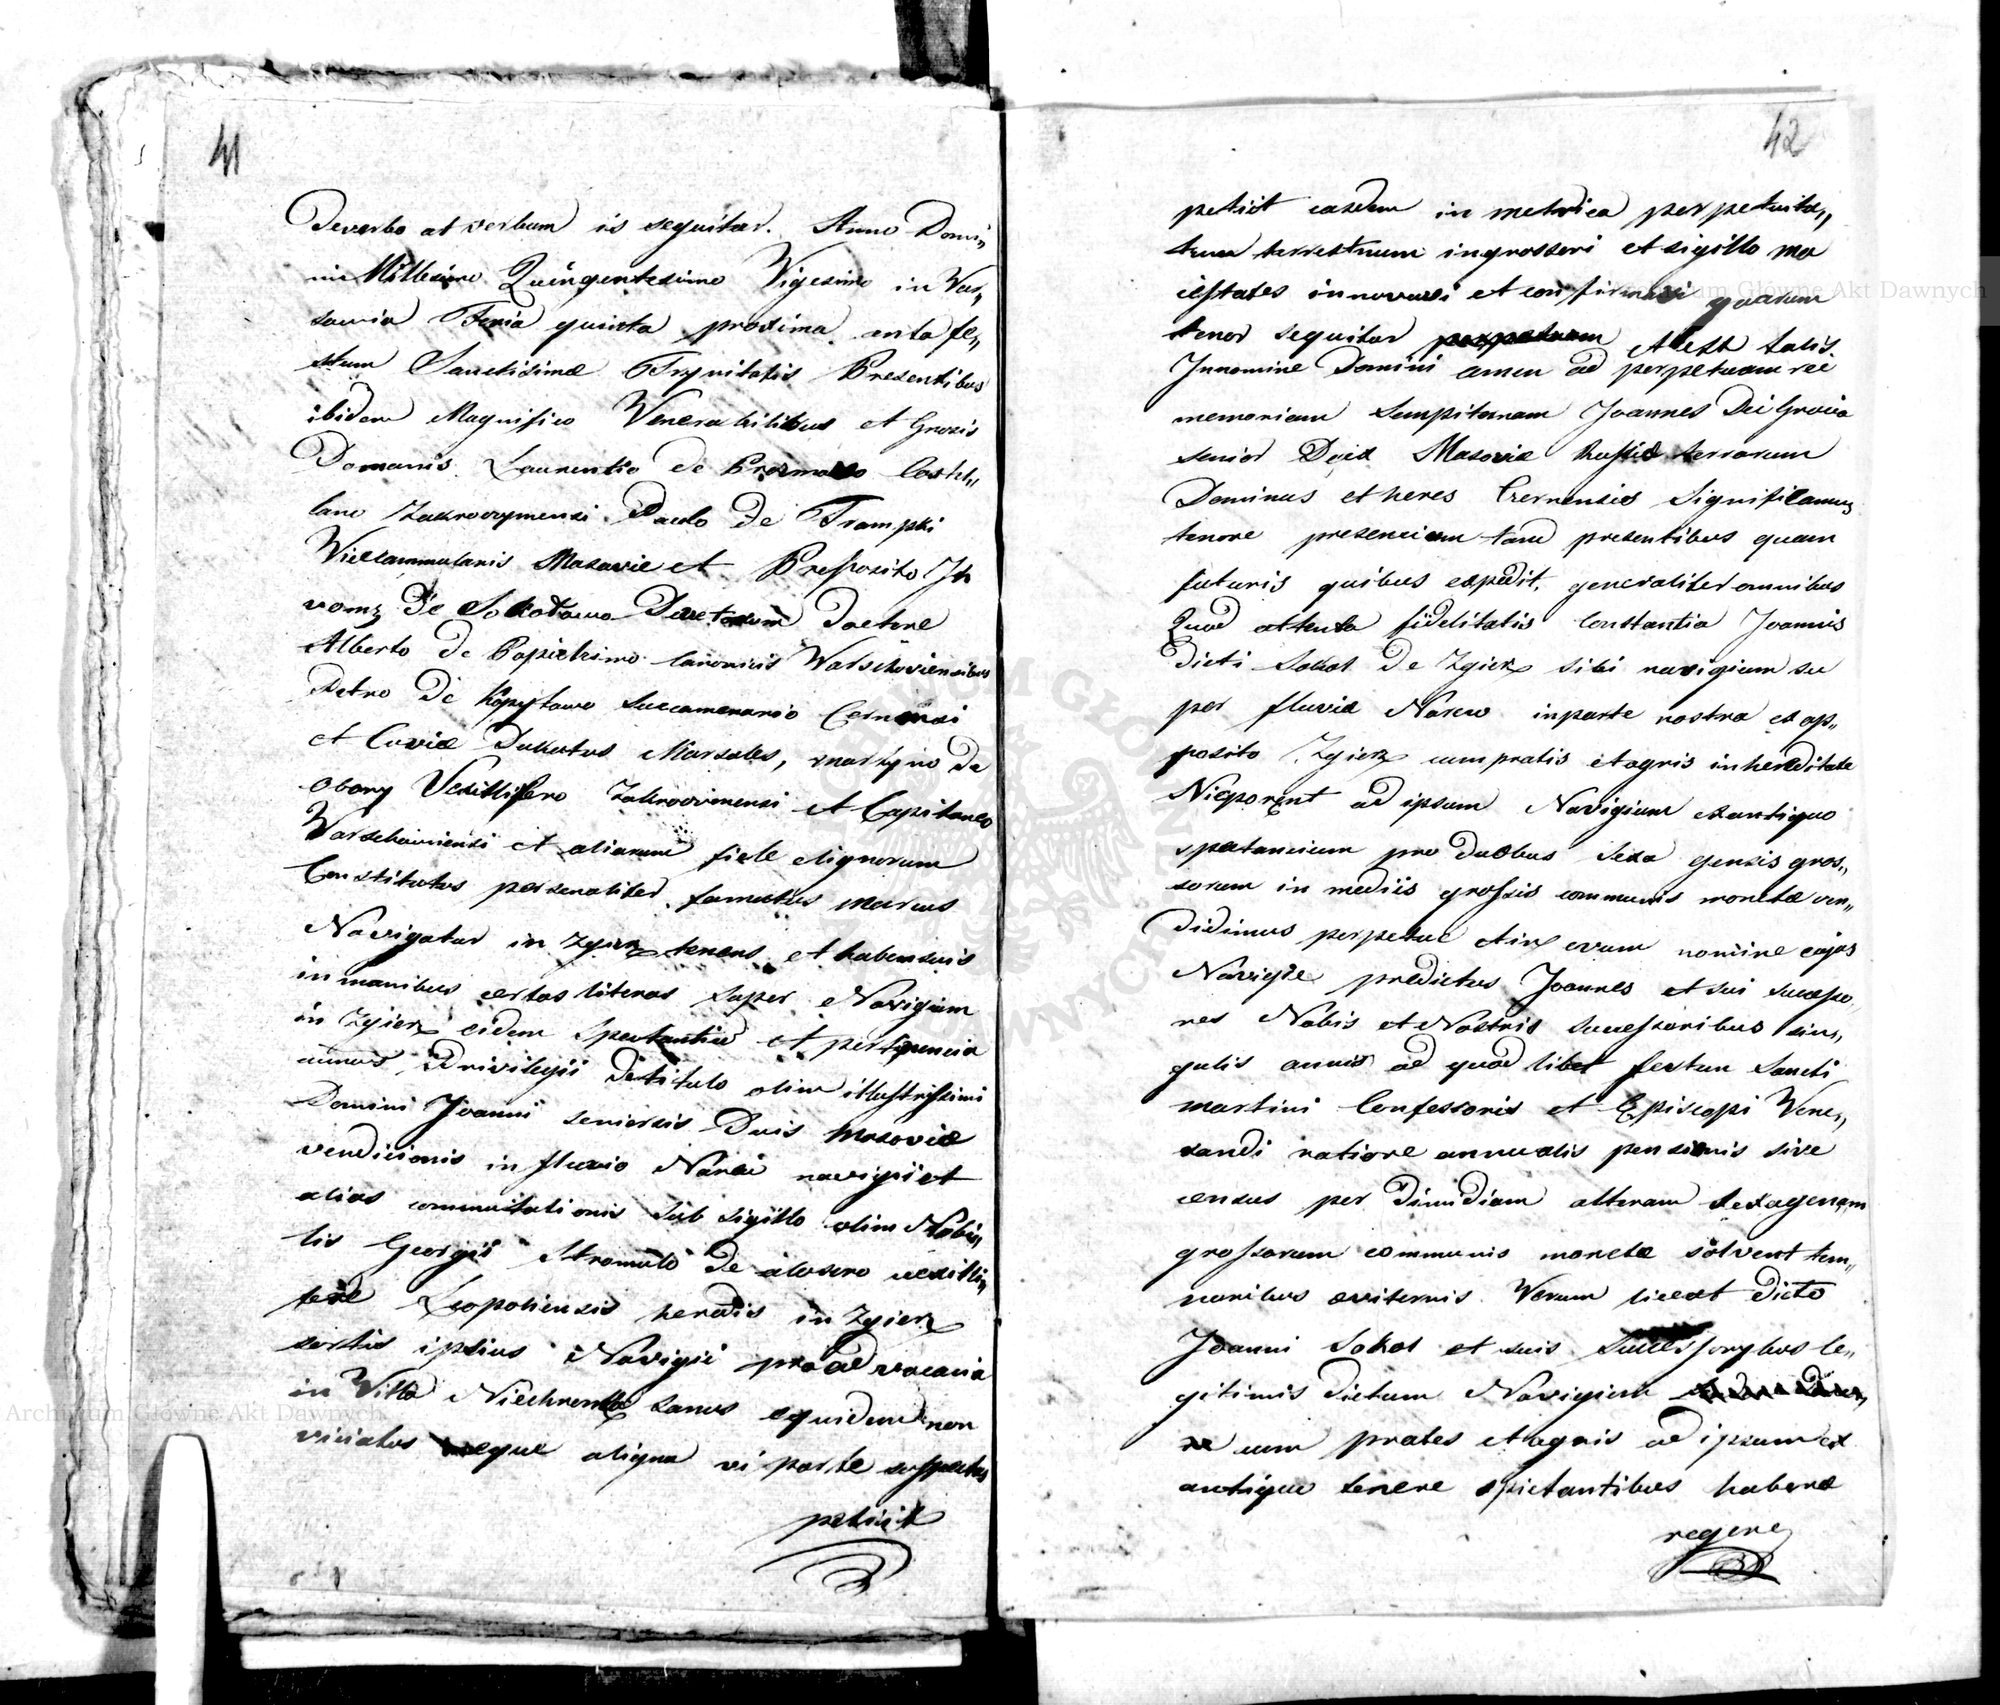 41
Deverbo at verbum is sequitur. Anno Domi„
ni Millesimo Quingentesimo Vigesimo in Var„
savia Feria quinta proxima anta fe„
stum Sanctisimæ Trynitatis Presentibus
ibidem Magnifico Venerabilibus et Grosis
Domanis Laurentio de Prazmowo Castel„
lano Zakroczymensi Paulo de Trampki
Vicecammularis Masovie et Preposito Jh
vomz De Sokołowo Decretorum Doctore
Alberto de Popielzino Canonicis Warschoviensibus
Petro De Kopytowo Succamerario Cernensi
et Curiæ Ducatus Marsales, martyno de
Obory Vexillifero Zakroczimensi et Capitaneo
Warschowiensi et aliarum fide dignorum
Constitutus personaliter famatus Marcus
Navigator in Zgierz tenens et habens suis
in manibus certas literas super Navigium
in Zgierz eidem spectantia et pertynencia
unius Privilegii de titulo olim illustrissimi
Domini Joanni senioris Ducis Masoviæ
vendicionis in fluvio Narew navigii et
alias commutationis sub sigillo olim Nobi„
lis Georgii Stromiło de alosero vexilli„
fere Leopoliensis heredis in Zgierz
sortis ipsius Navigii pro advocacia
in Villa Niechrentla sanus equidem non
viciatus neque aliqua vi parte suspectas
petiit
42
petiit easdem in metrica perpetuita„
tum terrestrium ingrossari et sigillo ma
iestates innovari et confirmari quarum
tenor sequitur et est talis.
Jnnomine Domini amen ad perpetuam rei
memoriam sempitarnam Joannes Dei Gracia
senior Dux Masoviæ Russiæ terrarum
Dominus et heres Czernensis significamus
tenore presencium tam presentibus quam
futuris quibus expedit, generaliter omnibus
Quod attenta fidelitatis constantia Joannis
dicti Sokol de Zgierz sibi navigium su
per fluviæ Narew inparte nostra ex op„
posito Zgierz cum pratis et agris inhereditate
Nieporent ad ipsum Navigium exantiquo
spectancium pro duobus sexa genis gros„
sorum in mediis grossis communis monetæ ven„
didimus perpetue et in evum nomine cujus
Navigie predictus Joannes et sui succeso„
res Nobis et Nostris successoribus sin„
gulis annis ad quod libet festum Sancti
martini Confessoris et Episcopi Vene„
randi ratione annualis pensionis sive
census per dimidiam alteram sexagenam
grossorum communis monetæ solvent tem„
poribus æviternis. Verum liceat dicto
Joanni Sokol et suis successorybus le„
gitimis dictum Navigium
cum prates et agris ad ipsum ex
antique tenere spictantibus habere
regere
Archiwum Główne Akt Dawnych